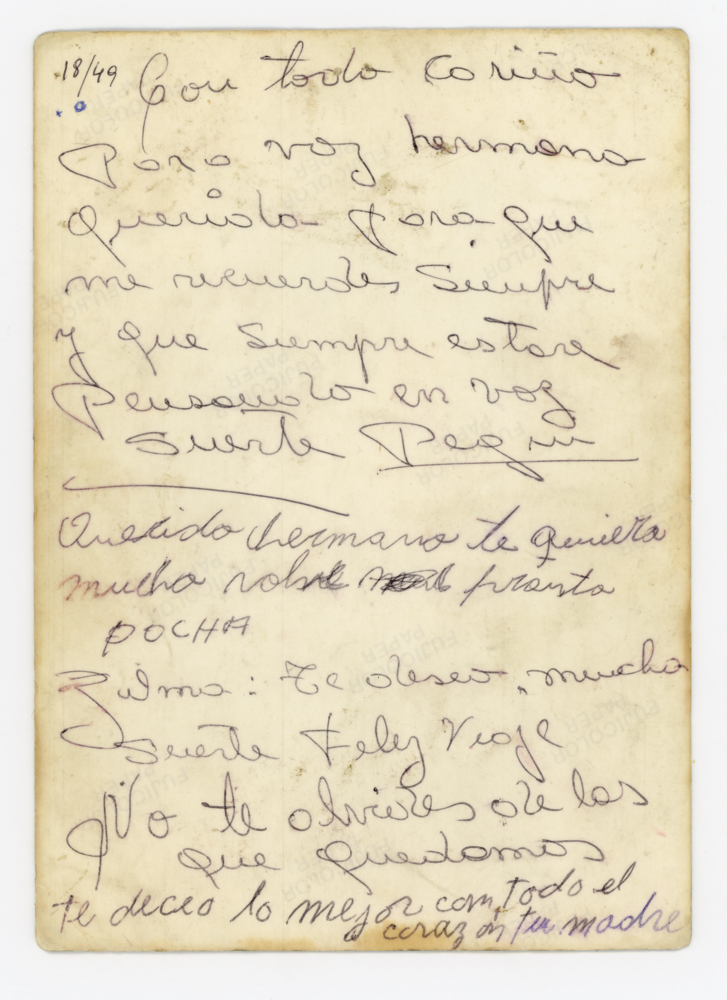 18/49
Con todo cariño
Para voz hermana
querida para que
me recuerdes siempre
y que siempre estare
Pensando en voz
Suerte Pequi
Querida hermana te quiero
mucho pronto
POCHA
Zulma: Te deseo mucha
Suerte Feliz Viaje
No te olvides de las
que quedamos
te deceo lo mejor con todo el
corazón tu madre
FUJICOLOR
PAPER